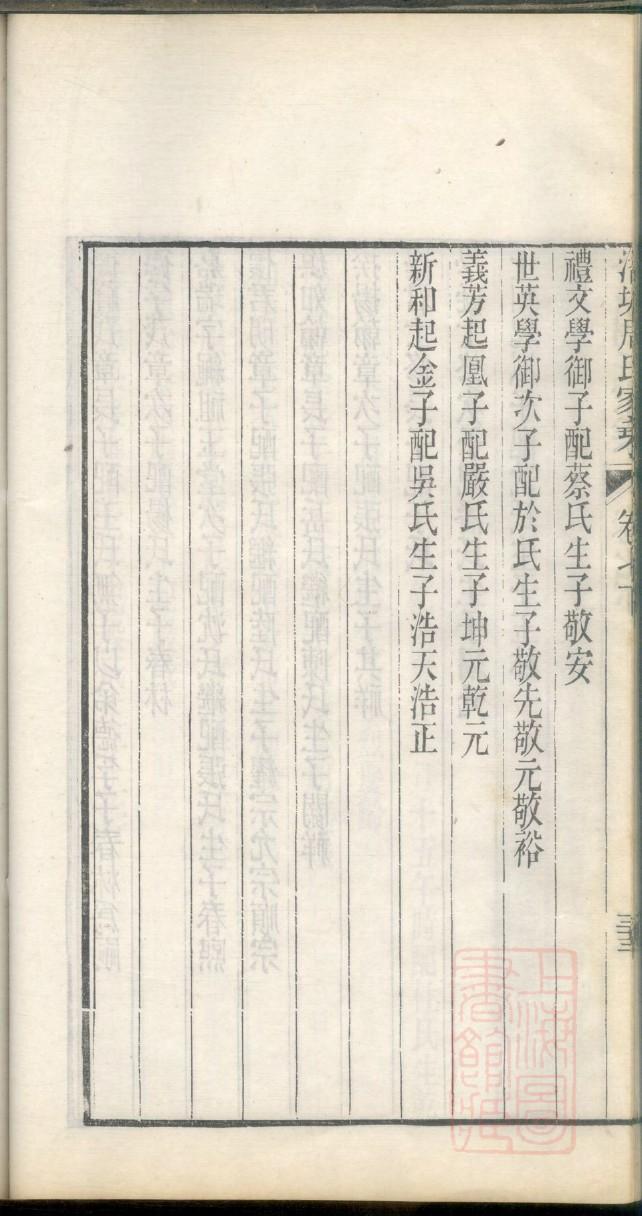 周氏家乘
卷七十
禮文學御子配蔡氏生子敬安
世英學御次子配於氏生子敬先敬元敬裕
義芳起凰子配嚴氏生子坤元乾元
新和起金子配吳氏生子浩天浩正
上海圖書館藏